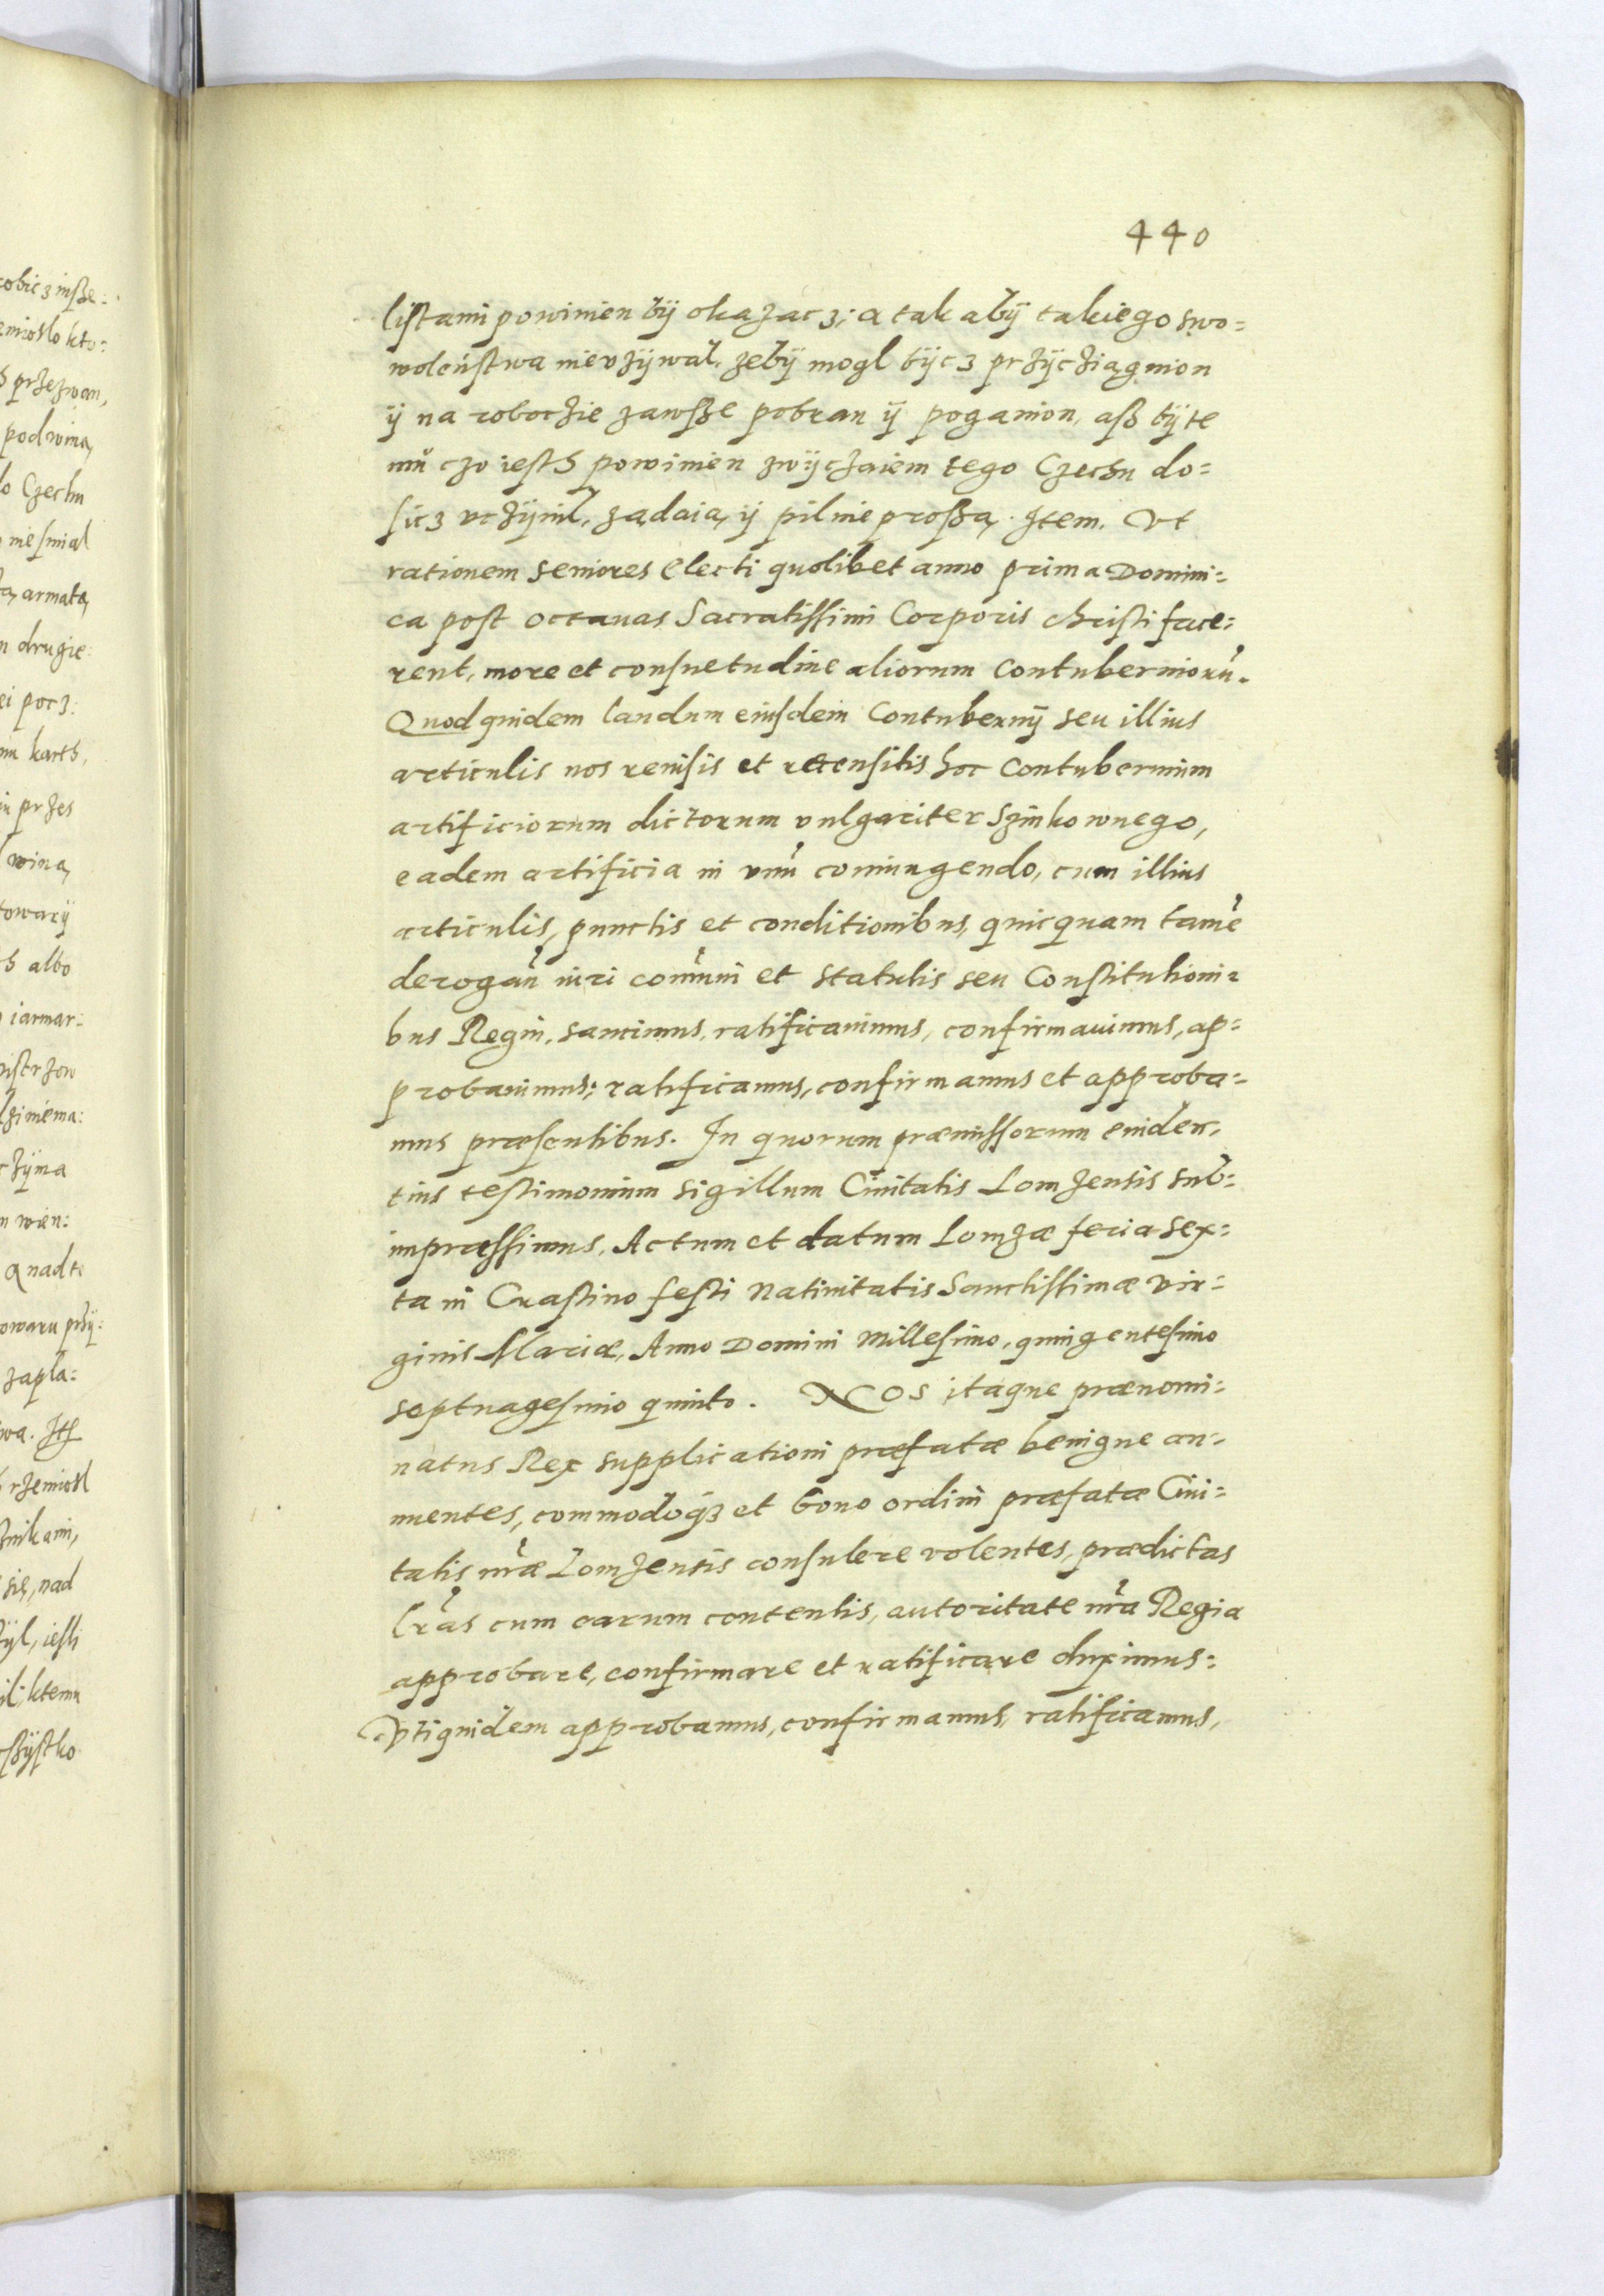 440
listami powinien bÿ okazacz; a tak abÿ takiego swo=
wolenstwa nieużÿwal, zebÿ mogl bÿcz przÿcziągnion
ÿ na roboczie zawsße pobran ÿ poganion, asß bÿ te
mŭ czo iesth powinien zwÿczaiem tego Czechu do=
sicz vczÿnil, ządaią ÿ pilnie proszą. Item. Vt
rationem seniores electi quolibet anno prima Domini=
ca post octauas Sacratissimi Corporis christi face=
rent, more et consuetudine aliorum Contubernioru̍.
Quod quidem laudum eiusdem Contubernÿ seu illius
articulis nos reuisis et recensitis hoc Contubernium
artificiorum dictorum vulgariter Szinkownego,
eadem artificia in vnu̍ coniungendo, cum illius
articulis, punctis et conditionibus, quicquam tame̍
derogan̍ iuri com̍uni et statutis seu Constitutioni=
bus Regni, sancimus, ratificauimus, confirmauimus, ap=
probauimus; ratificamus, confirmamus et approba=
mus præsentibus. In quorum præmissorum euiden,
tius testimonium sigillum Ciuitatis Lomzensis sub=
impræssimus. Actum et datum Lomzæ feria sex=
ta in Crastino festi Natiuitatis Sanctissimæ Vir=
ginis Mariæ, Anno Domini Millesimo, quingentesimo
septuagesimo quinto. Nos itaque prænomi=
natus Rex supplicationi præfatæ benigne an=
nuentes, commodoq3 et bono ordini præfatæ Ciui=
tatis nr̍æ Lomzensis consulere volentes, prædictas
lr̍as cum earum contentis, autoritate nr̍a Regia
approbare, confirmare et ratificare duximus:
Vti quidem approbamus, confirmamus, ratificamus,